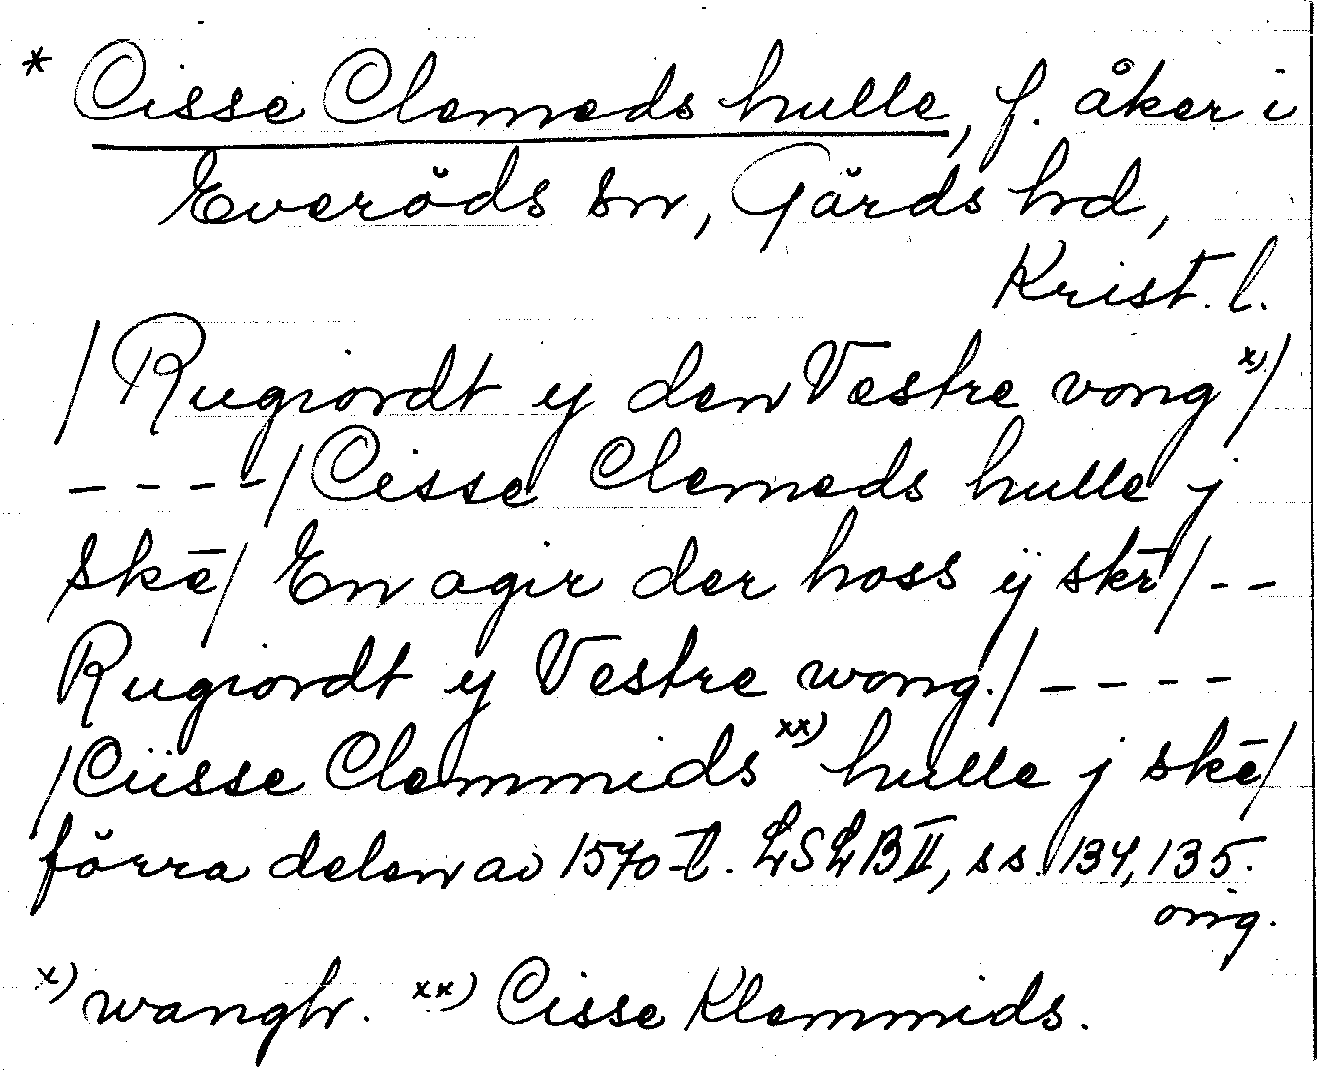 * Cisse Clemeds hulle, f. åker i
Everöds sn, Gärds hd,
Krist. l.
/ Rugiordt y den Vestre vong x) /
---- / Cisse Clemeds hulle j
skē / En agir der hoss ÿ skē / --
Rugiordt y Vestre wong. / ----
/ Ciisse Clemmids xx) hulle j skē /
förra delen av 1570-t. LSLB II, ss. 134, 135.
orig.
x) wangh. xx) Cisse Klemmids.